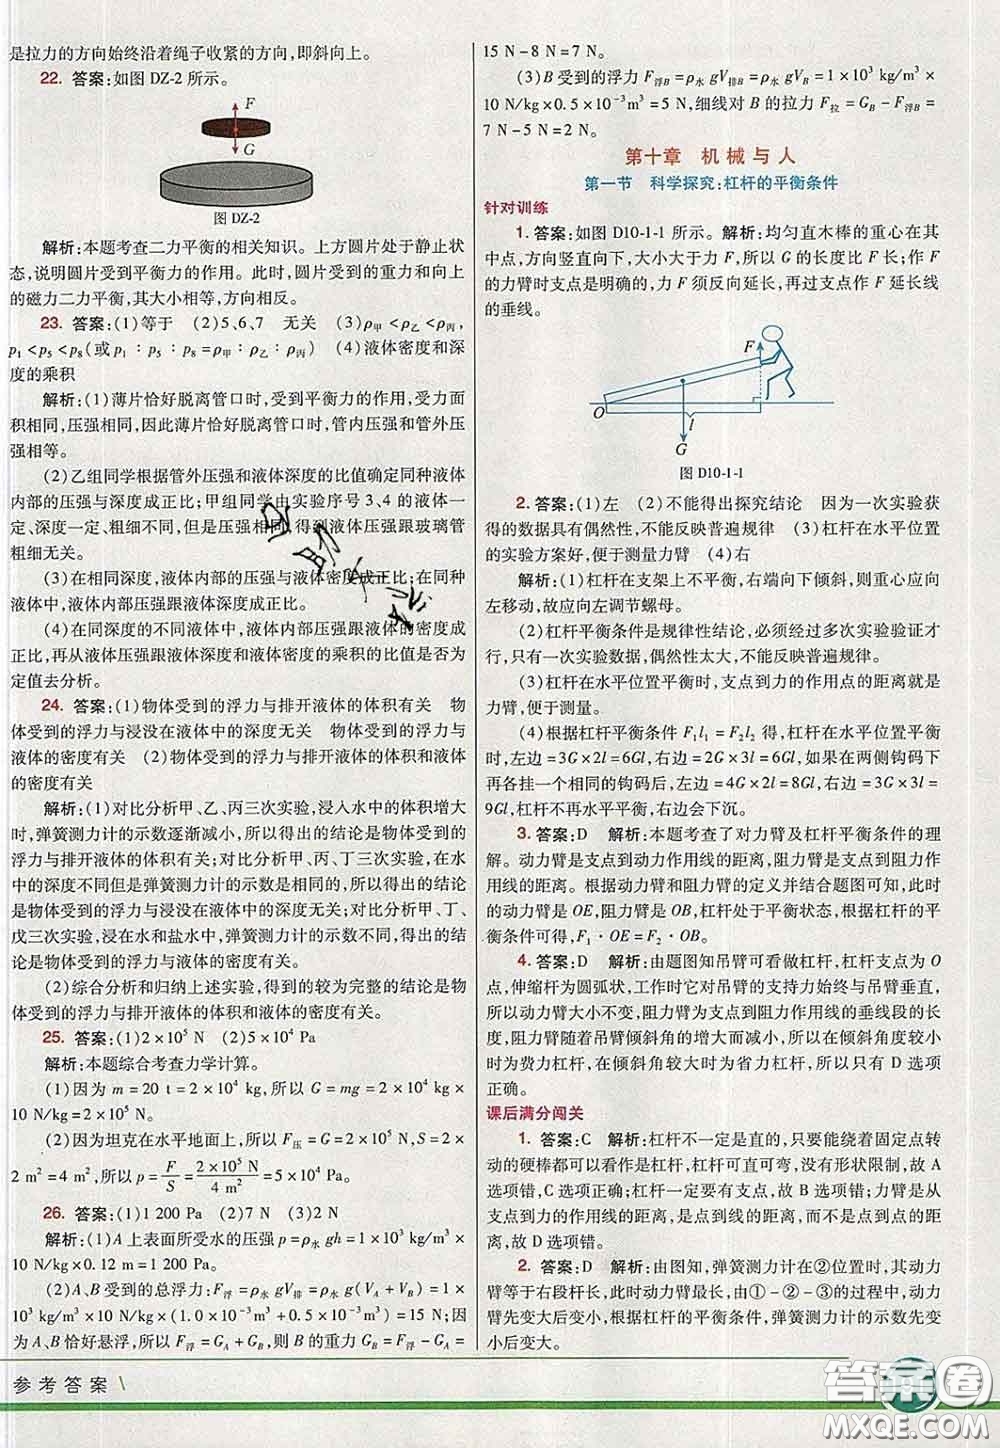 是拉力的方向始终沿着绳子收紧的方向,即斜向上。
22. 答案:如图 DZ-2 所示。
F
G
图 DZ-2
解析:本题考查二力平衡的相关知识。上方圆片处于静止状
态,说明圆片受到平衡力的作用。此时,圆片受到的重力和向上
的磁力二力平衡,其大小相等,方向相反。
23. 答案:(1)等于 (2)5、6、7 无关 (3)ρ甲<ρ乙<ρ丙,
p₁<p₅<p₈(或p₁∶p₅∶p₈=ρ甲∶ρ乙∶ρ丙) (4)液体密度和深
度的乘积
解析:(1)薄片恰好脱离管口时,受到平衡力的作用,受力面
积相同,压强相同,因此薄片恰好脱离管口时,管内压强和管外压
强相等。
(2)乙组同学根据管外压强和液体深度的比值确定同种液体
内部的压强与深度成正比;甲组同学由实验序号 3、4 的液体一
定、深度一定、粗细不同,但是压强相同,得到液体压强跟玻璃管
粗细无关。
(3)在相同深度,液体内部的压强与液体密度成正比;在同种
液体中,液体内部压强跟液体深度成正比。
(4)在同深度的不同液体中,液体内部压强跟液体的密度成
正比,再从液体压强跟液体深度和液体密度的乘积的比值是否为
定值去分析。
24. 答案:(1)物体受到的浮力与排开液体的体积有关 物
体受到的浮力与浸没在液体中的深度无关 物体受到的浮力与
液体的密度有关 (2)物体受到的浮力与排开液体的体积和液体
的密度有关
解析:(1)对比分析甲、乙、丙三次实验,浸入水中的体积增大
时,弹簧测力计的示数逐渐减小,所以得出的结论是物体受到的
浮力与排开液体的体积有关;对比分析甲、丙、丁三次实验,在水
中的深度不同但是弹簧测力计的示数是相同的,所以得出的结论
是物体受到的浮力与浸没在液体中的深度无关;对比分析甲、丁、
戊三次实验,浸在水和盐水中,弹簧测力计的示数不同,得出的结
论是物体受到的浮力与液体的密度有关。
(2)综合分析和归纳上述实验,得到的较为完整的结论是物
体受到的浮力与排开液体的体积和液体的密度有关。
25. 答案:(1)2×10⁵ N (2)5×10⁴ Pa
解析:本题综合考查力学计算。
(1)因为 m=20 t=2×10⁴ kg,所以 G=mg=2×10⁴ kg×
10 N/kg=2×10⁵ N。
(2)因为坦克在水平地面上,所以 F压=G=2×10⁵ N,S=2×
2 m²=4 m²,所以 p=F/S=2×10⁵ N/4 m²=5×10⁴ Pa。
26. 答案:(1)1 200 Pa (2)7 N (3)2 N
解析:(1)A 上表面所受水的压强 p=ρ水gh=1×10³ kg/m³
×10 N/kg×0.12 m=1 200 Pa。
(2)A、B 受到的总浮力:F浮=ρ水gV排=ρ水g(VA+VB)=1×
10³ kg/m³×10 N/kg×(1.0×10⁻³ m³+0.5×10⁻³ m³)=15 N;因
为A、B 恰好悬浮,所以 F浮=GA+GB,则 B 的重力 GB=F浮-GA=
15 N-8 N=7 N。
(3)B 受到的浮力 F浮B=ρ水gV排B=ρ水gVB=1×10³ kg/m³×
10 N/kg×0.5×10⁻³m³=5 N,细线对 B 的拉力 F拉=GB-F浮B=
7 N-5 N=2 N。
第十章 机械与人
第一节 科学探究:杠杆的平衡条件
针对训练
1. 答案:如图 D10-1-1 所示。解析:均匀直木棒的重心在其
中点,方向竖直向下,大小大于力 F,所以 G 的长度比 F 长;作 F
的力臂时支点是明确的,力 F 须反向延长,再过支点作 F 延长线
的垂线。
F
O
l
G
图 D10-1-1
2. 答案:(1)左 (2)不能得出探究结论 因为一次实验获
得的数据具有偶然性,不能反映普遍规律 (3)杠杆在水平位置
的实验方案好,便于测量力臂 (4)右
解析:(1)杠杆在支架上不平衡,右端向下倾斜,则重心应向
左移动,故应向左调节螺母。
(2)杠杆平衡条件是规律性结论,必须经过多次实验验证才
行,只有一次实验数据,偶然性太大,不能反映普遍规律。
(3)杠杆在水平位置平衡时,支点到力的作用点的距离就是
力臂,便于测量。
(4)根据杠杆平衡条件 F₁l₁=F₂l₂ 得,杠杆在水平位置平衡
时,左边=3G×2l=6Gl,右边=2G×3l=6Gl,如果在两侧钩码下
再各挂一个相同的钩码后,左边=4G×2l=8Gl,右边=3G×3l=
9Gl,杠杆不再水平平衡,右边会下沉。
3. 答案:D 解析:本题考查了对力臂及杠杆平衡条件的理
解。动力臂是支点到动力作用线的距离,阻力臂是支点到阻力作
用线的距离。根据动力臂和阻力臂的定义并结合题图可知,此时
的动力臂是 OE,阻力臂是 OB,杠杆处于平衡状态,根据杠杆的平
衡条件可得,F₁·OE=F₂·OB。
4. 答案:D 解析:由题图知吊臂可看做杠杆,杠杆支点为 O
点,伸缩杆为圆弧状,工作时它对吊臂的支持力始终与吊臂垂直,
所以动力臂大小不变,动力臂为支点到阻力作用线的垂线段的长
度,阻力臂随着吊臂倾斜角的增大而减小,所以在倾斜角度较小
时为费力杠杆,在倾斜角度较大时为省力杠杆,所以有 D 选项
正确。
课后满分闯关
1. 答案:C 解析:杠杆不一定是直的,只要能绕着固定点转
动的硬棒都可以看作是杠杆,杠杆可直可弯,没有形状限制,故 A
选项错,C 选项正确;杠杆一定要有支点,故 B 选项错;力臂是从
支点到力的作用线的距离,是点到线的距离,而不是点到点的距
离,故 D 选项错。
2. 答案:D 解析:由图知,弹簧测力计在②位置时,其动力
臂等于右段杆长,此时动力臂最长,故由①-②-③的过程中,动力
臂先变大后变小,根据杠杆的平衡条件,弹簧测力计的示数先变
小后变大。
参考答案
答案圈
MXQE.COM